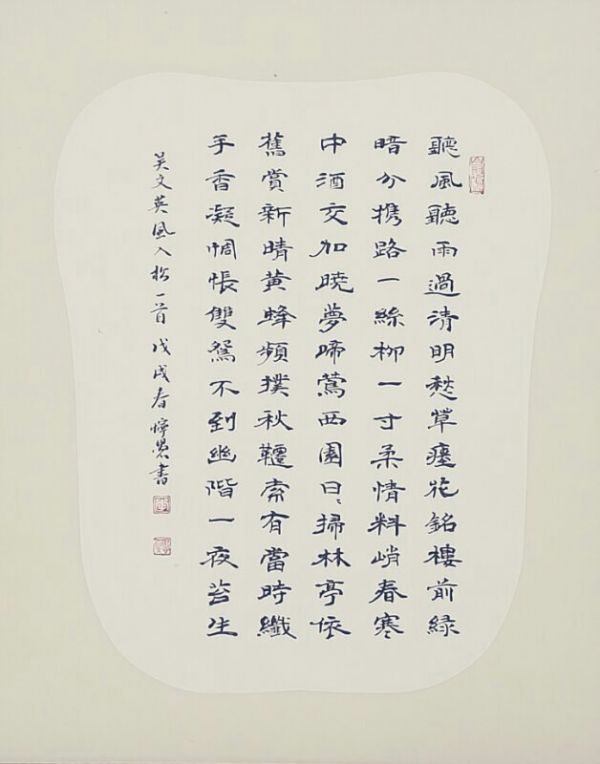 聽風聽雨過清明愁草瘞花銘樓前緑
暗分携路一絲柳一寸柔情料峭春寒
中酒交加曉夢啼鶯西園日〻掃林亭依
舊賞新晴黄蜂頻撲秋韆索有當時纖
手香凝惆悵雙鴛不到幽階一夜苔生
吴文英風入松一首戊戌春書